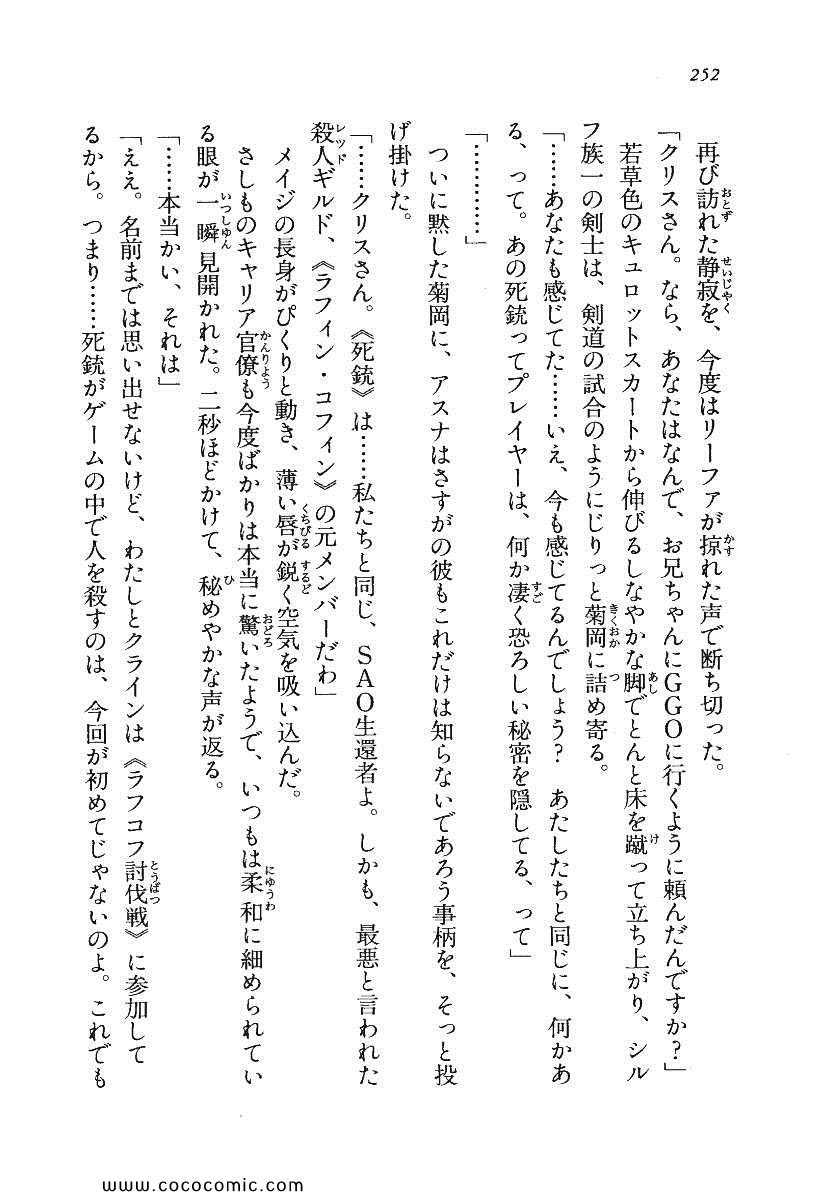 252
再び訪れた静寂を、今度はリーファが掠れた声で断ち切った。
「クリスさん。なら、あなたはなんで、お兄ちゃんにGGOに行くように頼んだんですか？」
若草色のキュロットスカートから伸びるしなやかな脚でとんと床を蹴って立ち上がり、シル
フ族一の剣士は、剣道の試合のようにじりっと菊岡に詰め寄る。
「……あなたも感じてた……いえ、今も感じてるんでしょう？　あたしたちと同じに、何かあ
る、って。あの死銃ってプレイヤーは、何か凄く恐ろしい秘密を隠してる、って」
「…………」
ついに黙した菊岡に、アスナはさすがの彼もこれだけは知らないであろう事柄を、そっと投
げ掛けた。
「……クリスさん。《死銃》は……私たちと同じ、SAO生還者よ。しかも、最悪と言われた
殺人ギルド、《ラフィン・コフィン》の元メンバーだわ」
メイジの長身がぴくりと動き、薄い唇が鋭く空気を吸い込んだ。
さしものキャリア官僚も今度ばかりは本当に驚いたようで、いつもは柔和に細められてい
る眼が一瞬見開かれた。二秒ほどかけて、秘めやかな声が返る。
「……本当かい、それは」
「ええ。名前までは思い出せないけど、わたしとクラインは《ラフコフ討伐戦》に参加して
るから。つまり……死銃がゲームの中で人を殺すのは、今回が初めてじゃないのよ。これでも
www.cococomic.com